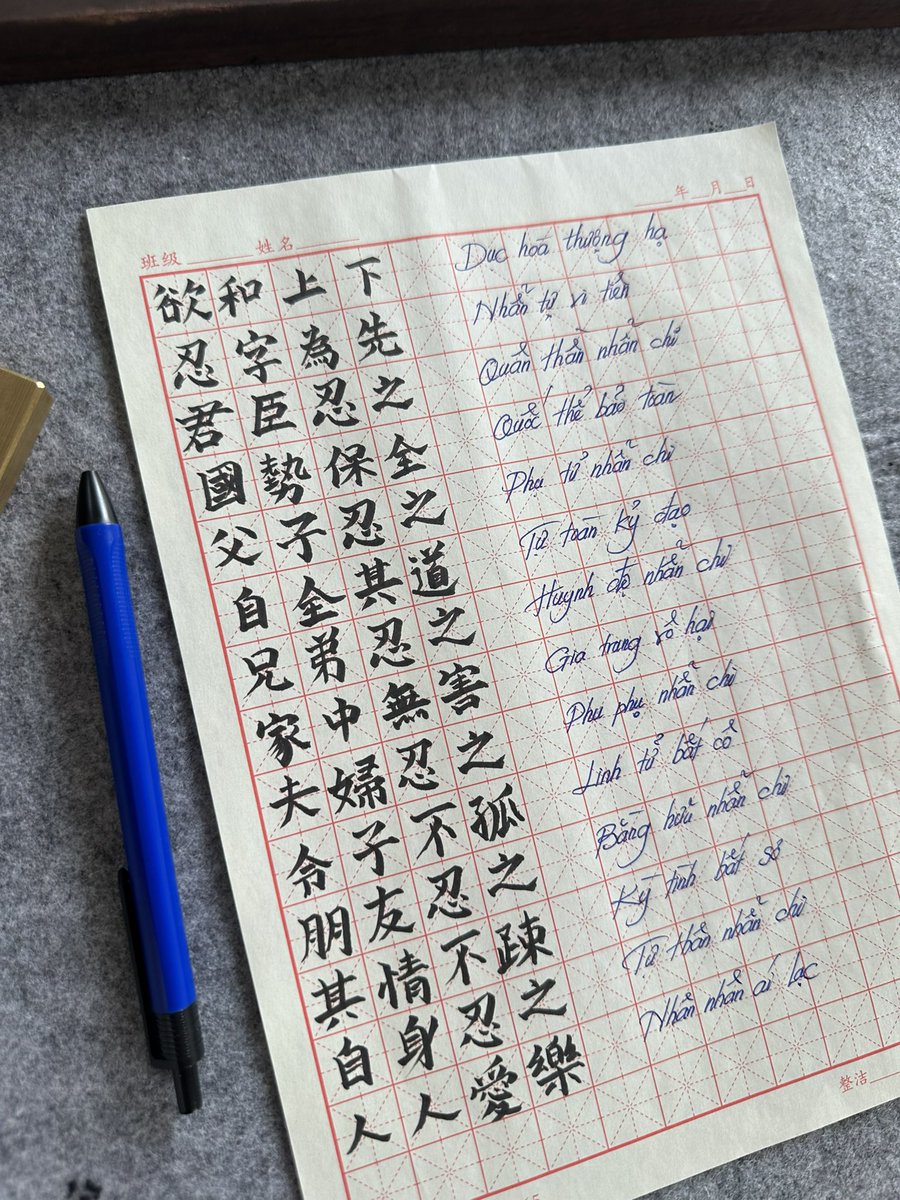 年 月 日
班级 姓名
欲和上下 Duc hoà thượng hạ
忍字為先 Nhẫn tự vi tiên
君臣忍之 Quân thần nhẫn chi
國勢保全 Quốc thể bảo toàn
父子忍之 Phụ tử nhẫn chi
自全其道 Tử toàn kỷ đạo
兄弟忍之 Huynh đệ nhẫn chi
家中無害 Gia trung vô hại
夫婦忍之 Phu phụ nhẫn chi
令子不孤 Linh tử bất cô
朋友忍之 Bằng hữu nhẫn chi
其情不踈 Kỳ tình bất sơ
自身忍之 Tử thân nhẫn chi
人人愛樂 Nhân nhân ái lạc
整洁